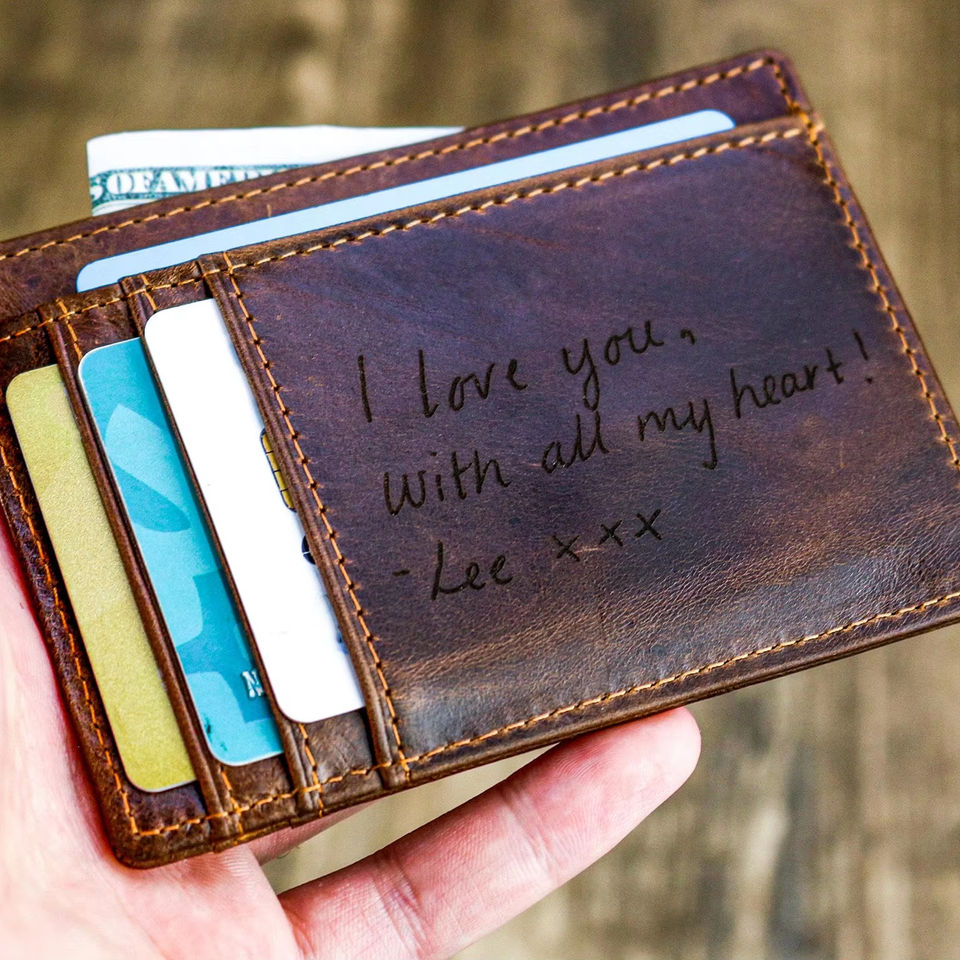 OFAMERI
I love you,
with all my heart!
- Lee xxx